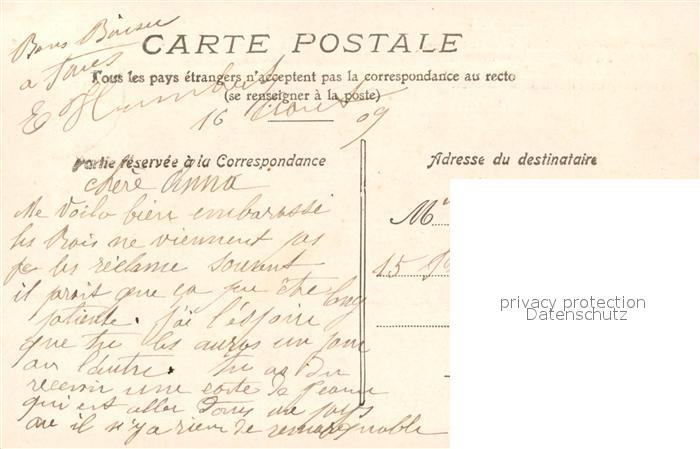 Bons Baisers
a Tous
E Humbert
CARTE POSTALE
Tous les pays étrangers n'acceptent pas la correspondance au recto
(se renseigner à la poste)
16 Aout 09
Partie réservée à la Correspondance
Adresse du destinataire
chère Anna
Me voila bien embarassé
les Trois ne viennent pas
je les réclame souvent
il parait que ça peu être long
patiente. J'ai l'espoire
que tu les auras un jour
ou l'autre. tu as du
recevoir une carte de
qui est aller dans un pays
ou il n'y a rien de remarquable
M
15
privacy protection
Datenschutz